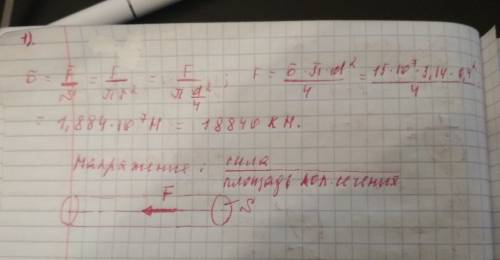 1).
σ = F/S = F/πr² = F/(π d²/4) ; F = σ·π·d²/4 = 15·10⁷·3,14·0,4²/4
= 1,884·10⁷ Н = 18840 кН.
Напряжение : сила/площадь поп. сечения
F
S